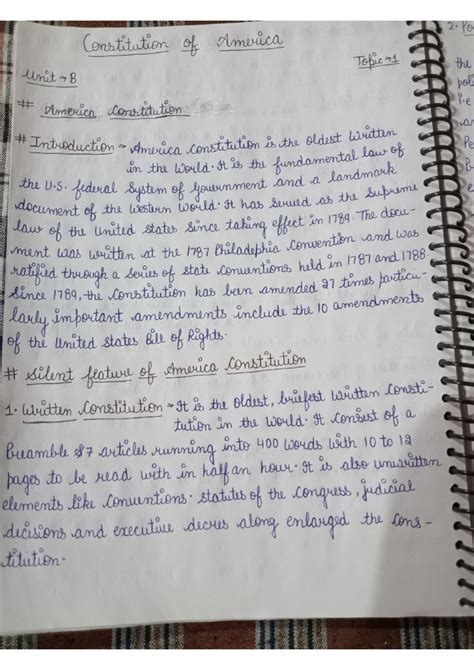 Constitution of America
Topic → 1
Unit → B
# America Constitution
# Introduction → America constitution is the oldest written
in the world. It is the fundamental law of
the U.S. federal system of government and a landmark
document of the western world. It has served as the supreme
law of the united states since taking effect in 1789. The docu-
ment was written at the 1787 Philadelphia Convention and was
ratified through a series of state conventions held in 1787 and 1788.
Since 1789, the Constitution has been amended 27 times particu-
larly important amendments include the 10 amendments
of the united states Bill of Rights.
# Silent feature of America Constitution
1. Written Constitution → It is the oldest, briefest written consti-
tution in the world. It consist of a
Preamble & 7 articles running into 400 words with 10 to 12
pages to be read with in half an hour. It is also unwritten
elements like Conventions. statutes of the Congress, judicial
decisions and executive decres along enlarged the cons-
titution.
2. Po
the